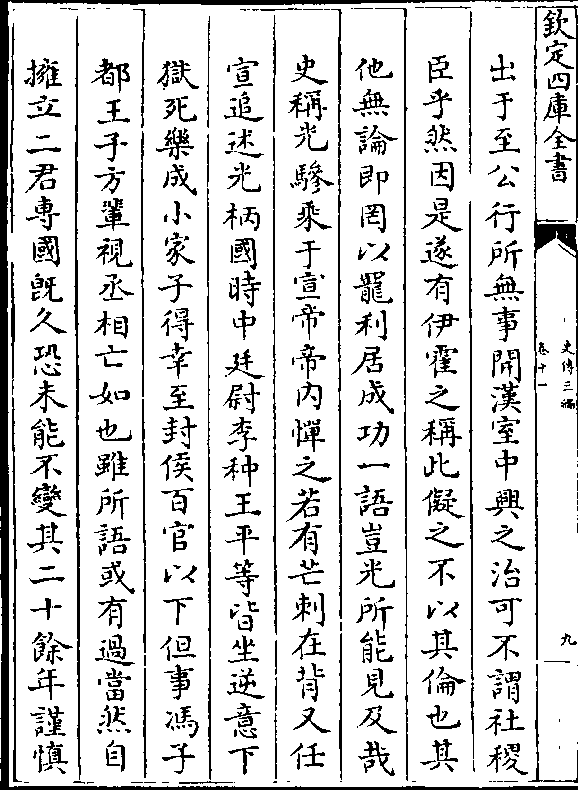 欽定四庫全書
史傳三編
卷十一
九
出于至公行所無事開漢室中興之治可不謂社稷
臣乎然因是遂有伊霍之稱此儗之不以其倫也其
他無論即罔以寵利居成功一語豈光所能見及哉
史稱光驂乘于宣帝帝内憚之若有芒刺在背又任
宣追述光柄國時中廷尉李种王平等皆坐逆意下
獄死樂成小家子得幸至封侯百官以下但事馮子
都王子方輩視丞相亡如也雖所語或有過當然自
擁立二君專國既久恐未能不變其二十餘年謹慎